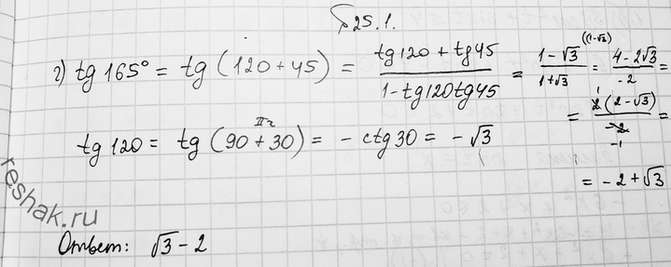 § 25.1.
г) tg 165° = tg (120 + 45) = (tg 120 + tg 45) / (1 - tg 120 tg 45) = (1 - √3) / (1 + √3) (1-√3) = (4 - 2√3) / -2 =
= 2 (2 - √3) / -2 =
1
-1
tg 120 = tg (90 + 30) = - ctg 30 = - √3
= - 2 + √3
reshak.ru
Ответ: √3 - 2